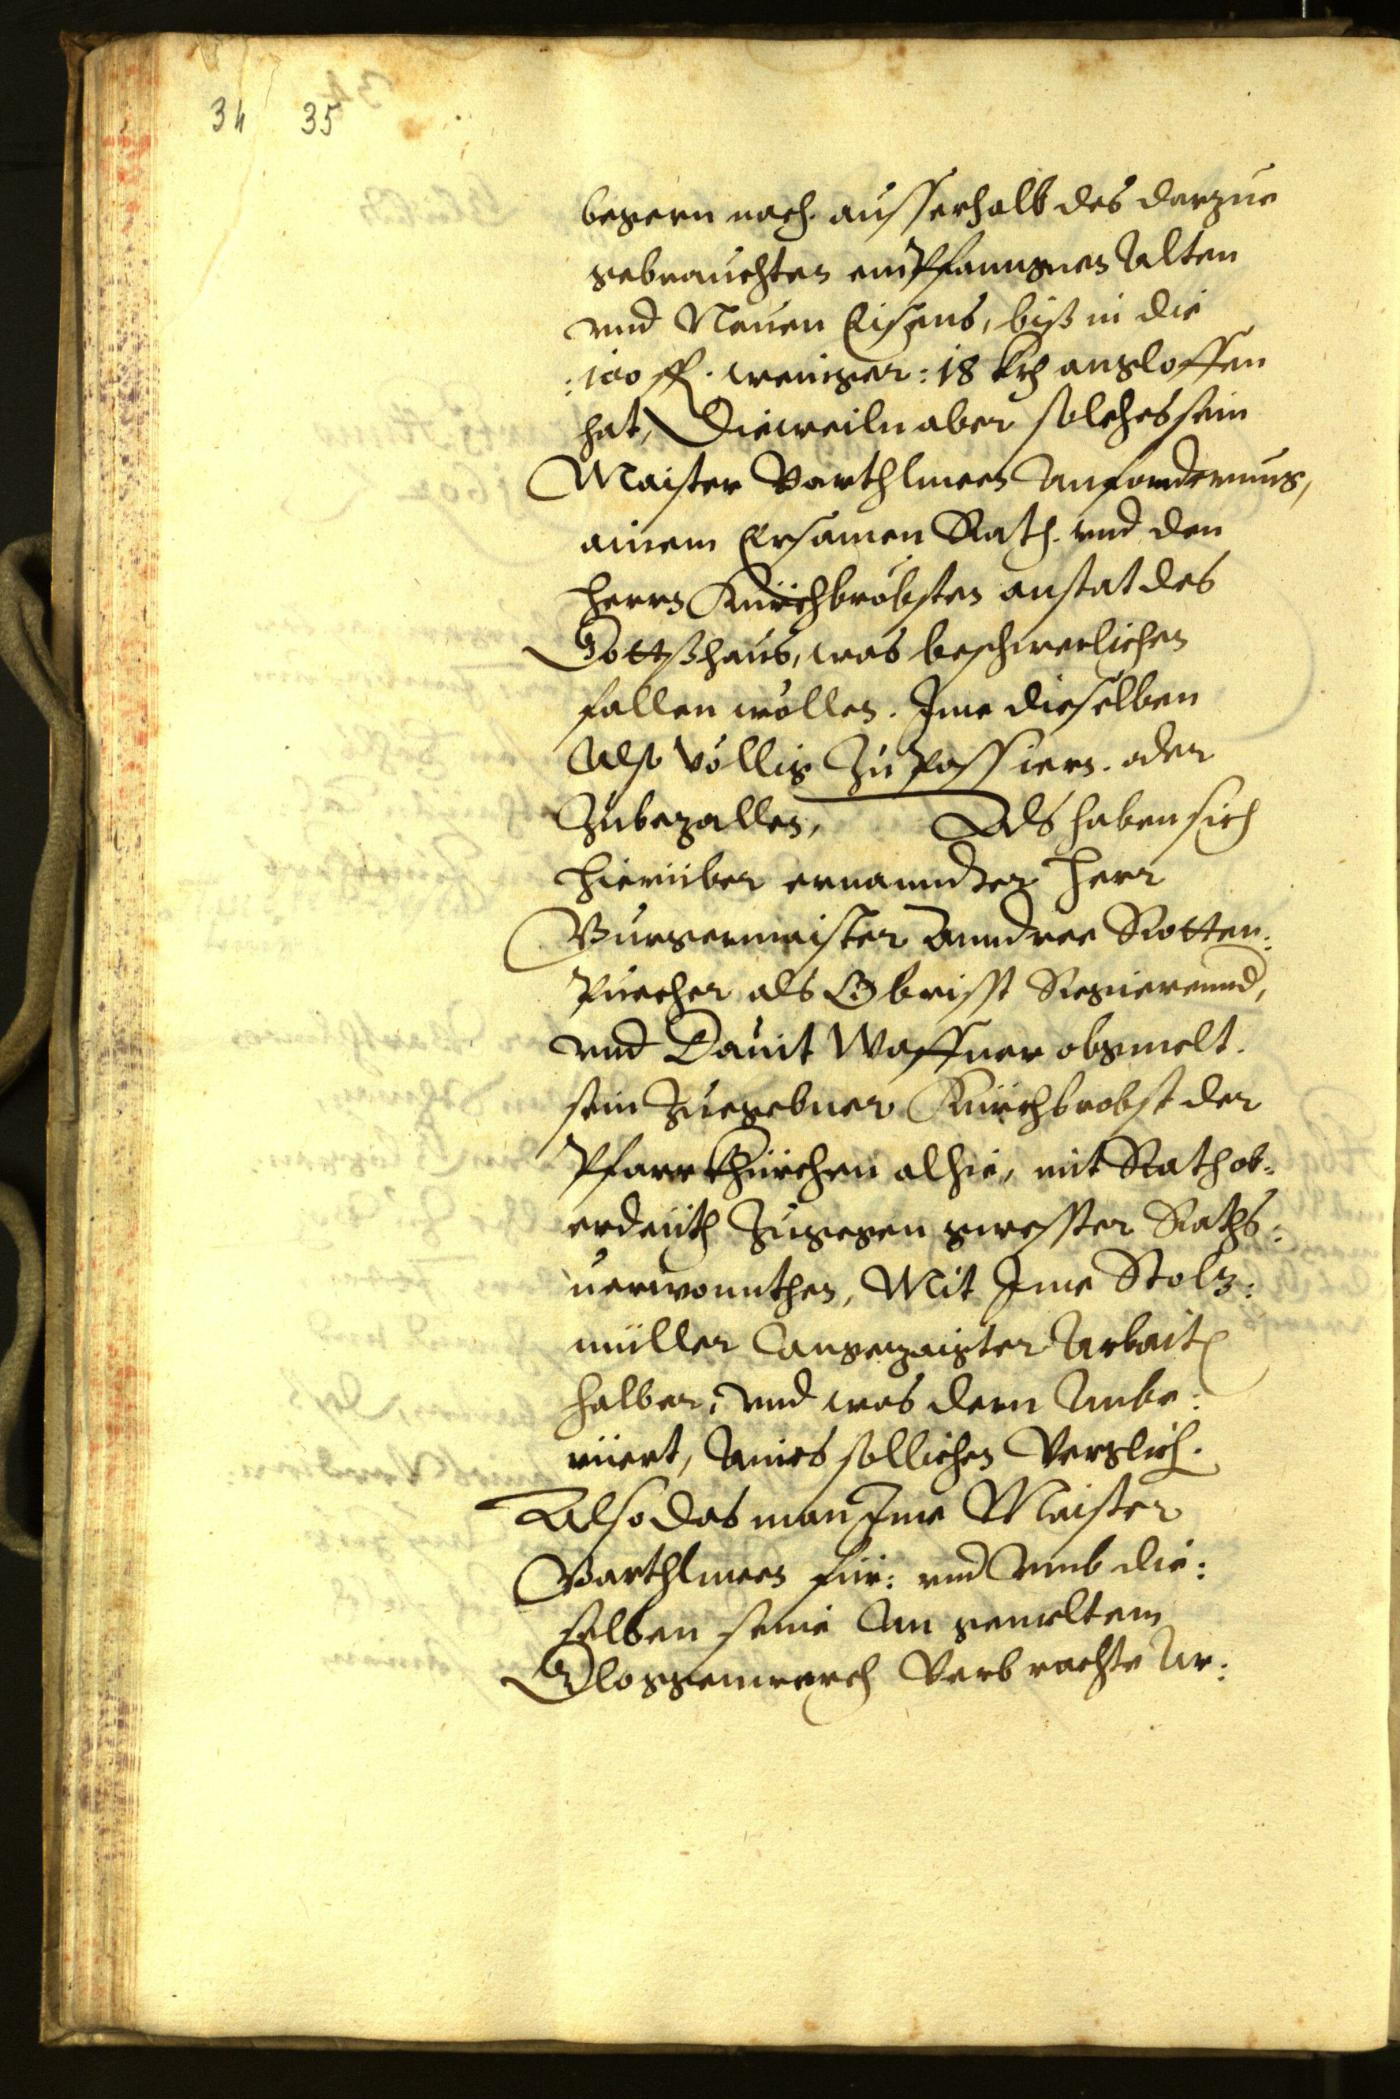 34 35
begern nach ausserhalb des darzue
gebrauchten empfanngnen Alten
vnd Neuen Eisens, biß in die
:100 fl. weniger: 18 kr angeloffen
hat, Dieweiln aber solches sein
Maister Barthlmeen Anforderung,
ainem Ersamen Rath. vnd den
Herrn Kirchbröbsten anstat des
Gottßhaus, was beschwerlichen
fallen wöllen. Ime dieselben
Also völlig Zu passiern. oder
Zubezallen, Als haben sich
hierüber ernannter Herr
Burgermaister Anndree Rotten:
puecher als Obrisst Regierennd,
vnd Dauit Waffner obgmelt.
sein zuegebner Kirchbrobst der
Pfarrkhirchen alhie, mit Rath ob:
erdeuth Zugegen gwesster Raths:
uerwonnthen, Mit Ime Stolz:
müller angezaigter Arbait
halber, vnd was dem Anbe:
rüert, Aines sollichen Verglich.
Also das man Ime Maister
Barthlmeen für: vnd vmb die:
selben seine An gemeltem
Gloggenwerch Verbrachte Ar: